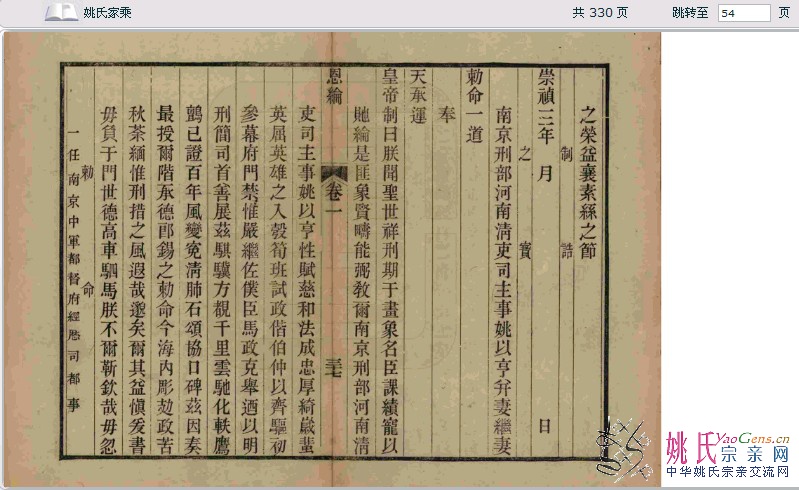 姚氏家乘
共 330 页
跳转至 54 页
之榮益襄素絲之節
制 誥
崇禎三年 月 日
之 寶
南京刑部河南清吏司主事姚以亨弁妻繼妻
勅命一道
奉
天承運
皇帝制曰朕聞聖世祥刑期于畫象名臣課績寵以
貤綸是匪象賢疇能弼教爾南京刑部河南清
恩綸 卷一 三七
吏司主事姚以亨性賦慈和法成忠厚綺歲蜚
英屈英雄之入彀筍班試政偕伯仲以齊驅初
參幕府門禁惟嚴繼佐僕臣馬政克舉迺以明
刑簡司首善展茲騏驥方覩千里雲馳化軼鷹
鸇已證百年風變寃清肺石頌協口碑茲因奏
最授爾階承德郎錫之勅命今海內彫攰政苦
秋茶緬惟刑措之風遐哉邈矣爾其益愼爰書
毋負于門世德高車駟馬朕不爾靳欽哉毋忽
勅 命
一任南京中軍都督府經歷司都事
姚氏YaoGens.cn
宗亲网
中华姚氏宗亲交流网